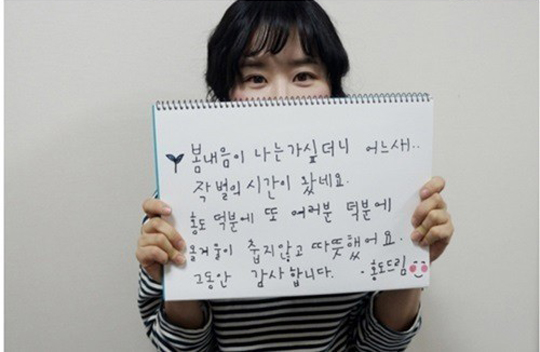 봄내음이 나는가싶더니 어느새..
작별의 시간이 왔네요.
홍도 덕분에 또 여러분 덕분에
올겨울이 춥지않고 따뜻했어요.
그동안 감사합니다. - 홍도드림